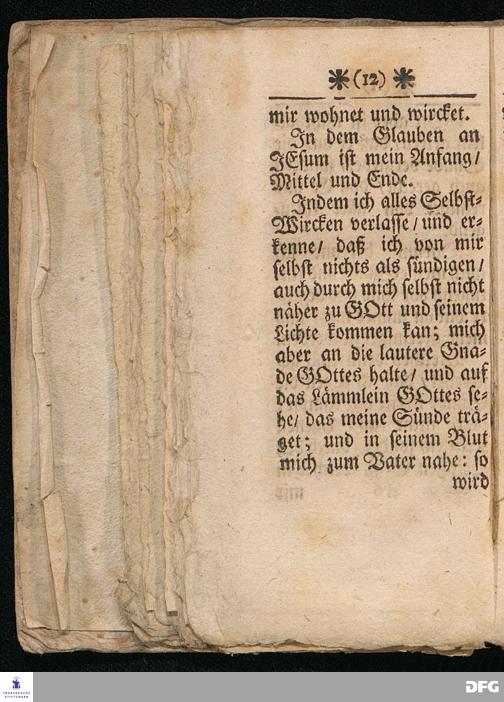 ❋ (12) ❋
mir wohnet und wircket.
In dem Glauben an
JEsum ist mein Anfang/
Mittel und Ende.
Indem ich alles Selbst-
Wircken verlasse/ und er-
kenne/ daß ich von mir
selbst nichts als sündigen/
auch durch mich selbst nicht
näher zu GOtt und seinem
Lichte kommen kan; mich
aber an die lautere Gna-
de GOttes halte/ und auf
das Lämmlein GOttes se-
he/ das meine Sünde trä-
get; und in seinem Blut
mich zum Vater nahe: so
wird
FRANCKESCHE
STIFTUNGEN
DFG